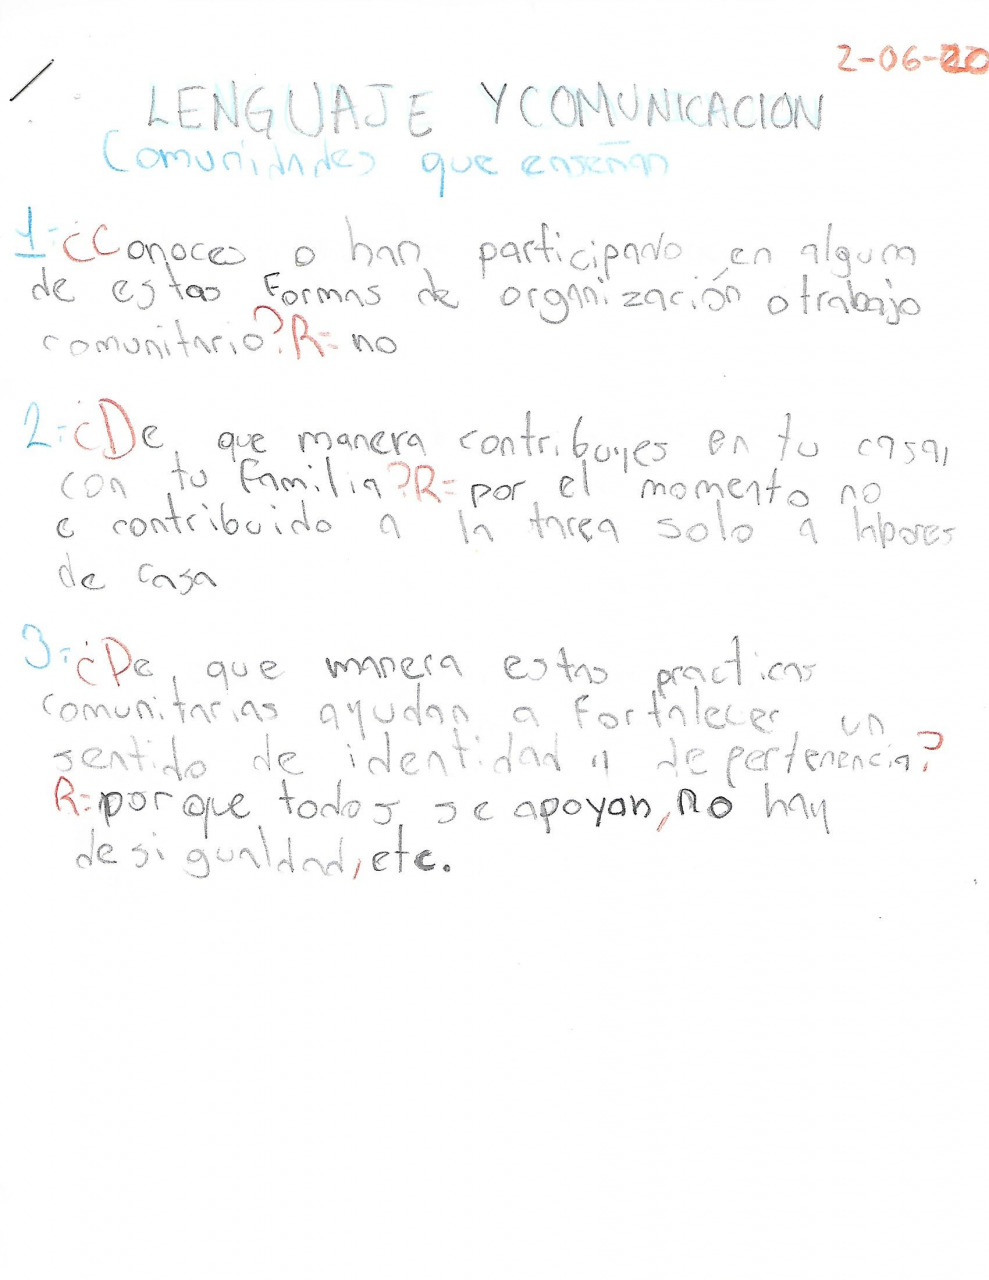 2-06-20
LENGUAJE Y COMUNICACION
Comunidades que enseñan
1=¿Conoces o han participado en alguna
de estas Formas de organización o trabajo
comunitario?R= no
2=¿De que manera contribuyes en tu casa,
con tu familia?R= por el momento no
e contribuido a la tarea solo a labores
de casa
3=¿De que manera estas practicas
comunitarias ayudan a Fortalecer un
sentido de identidad y de pertenencia?
R=porque todos se apoyan, no hay
desigualdad, etc.